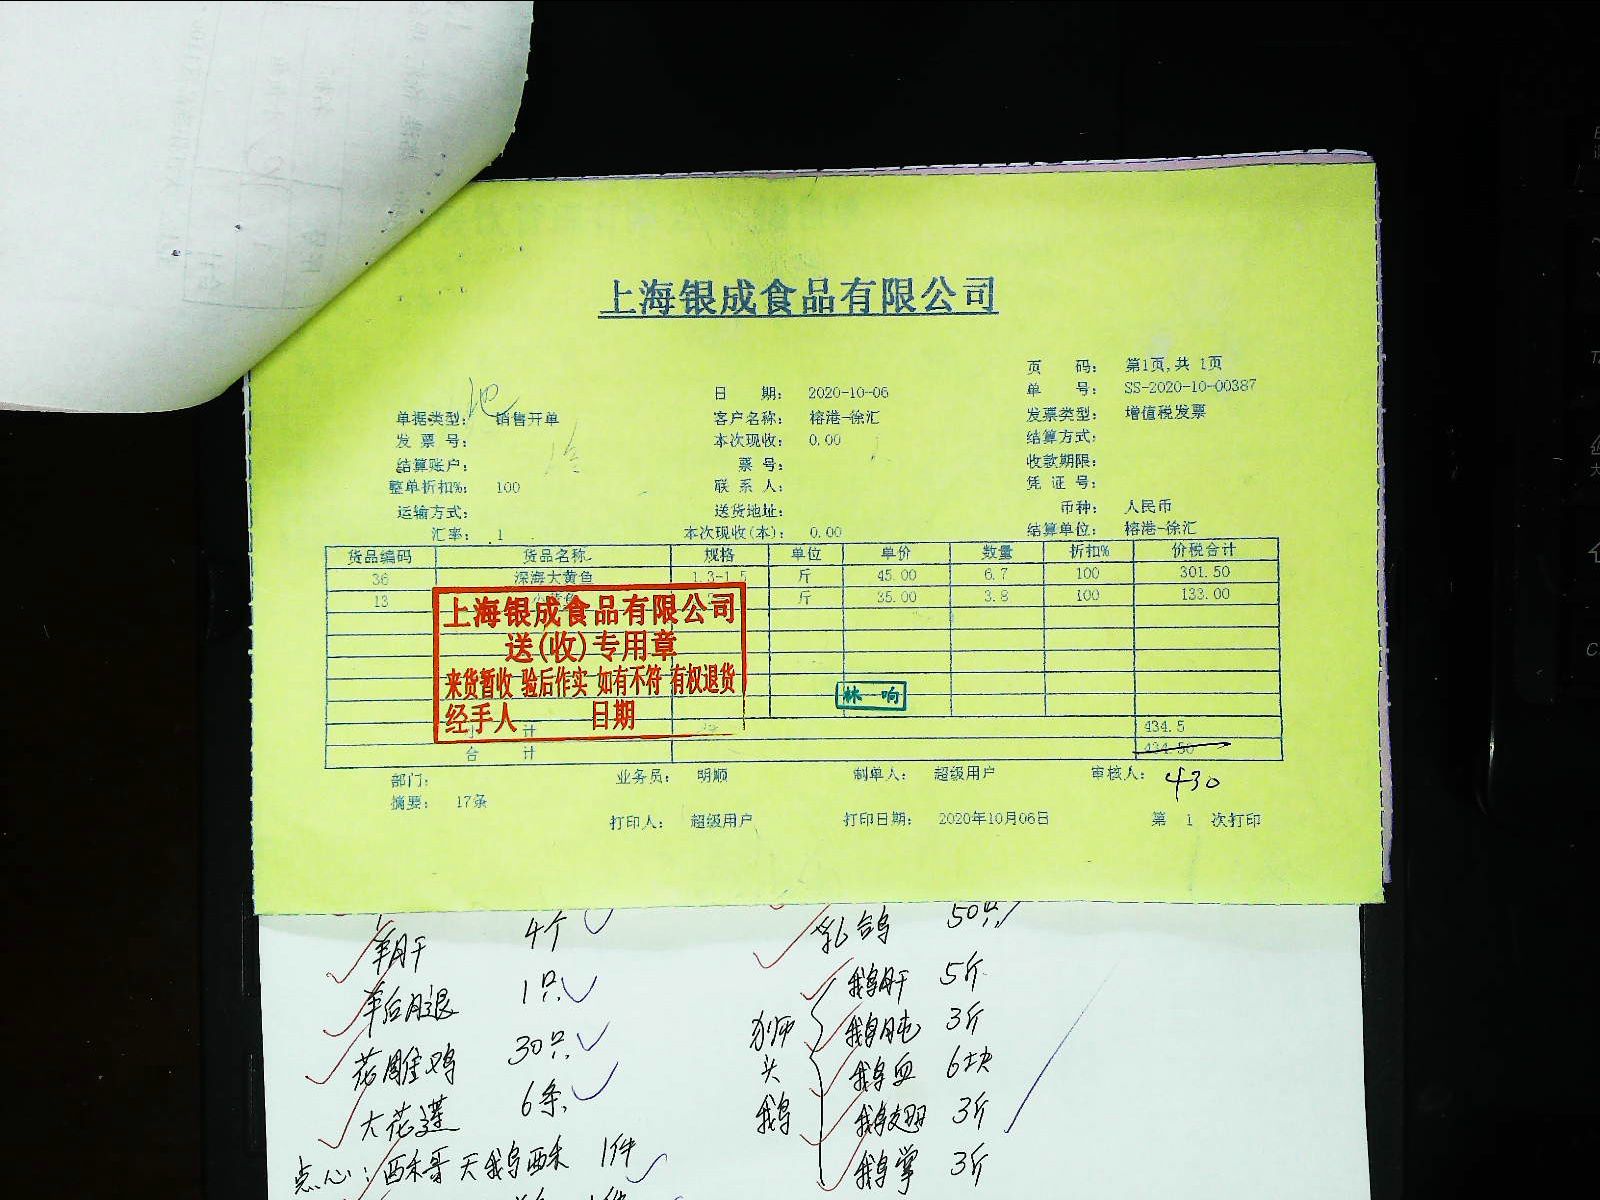 上海银成食品有限公司
页 码： 第1页,共 1页
日 期： 2020-10-06 单 号： SS-2020-10-00387
单据类型： 销售开单 客户名称： 榕港-徐汇 发票类型： 增值税发票
发 票 号： 本次现收： 0.00 结算方式：
结算账户： 票 号： 收款期限：
整单折扣%： 100 联 系 人： 凭 证 号：
运输方式： 送货地址： 币种： 人民币
汇率： 1 本次现收(本)： 0.00 结算单位： 榕港-徐汇
货品编码 货品名称 规格 单位 单价 数量 折扣% 价税合计
36 深海大黄鱼 1.3-1.5 斤 45.00 6.7 100 301.50
13 斤 35.00 3.8 100 133.00
上海银成食品有限公司
送(收)专用章
来货暂收 验后作实 如有不符 有权退货
经手人 日期
林 响
小 计 434.5
合 计 434.50
部门： 业务员： 明顺 制单人： 超级用户 审核人： 430
摘要： 17条
打印人： 超级用户 打印日期： 2020年10月06日 第 1 次打印
羊肝 4个
羊后腿 1只
花雕鸡 30只
大花莲 6条
点心：酥禾哥 天鹅酥 1件
乳鸽 50只
狮头鹅
鹅肝 5斤
鹅肫 3斤
鹅血 6块
鹅翅 3斤
鹅掌 3斤